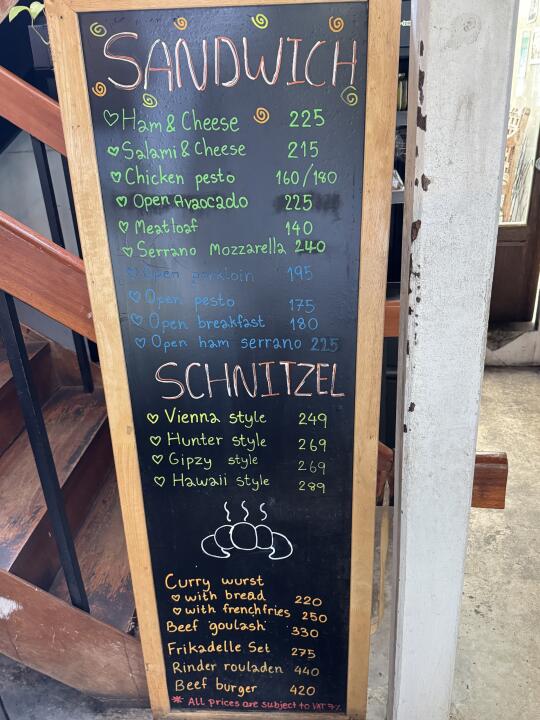 SANDWICH
Ham & Cheese 225
Salami & Cheese 215
Chicken pesto 160/180
Open Avaocado 225
Meatloaf 140
Serrano Mozzarella 240
Open porkloin 195
Open pesto 175
Open breakfast 180
Open ham serrano 225
SCHNITZEL
Vienna style 249
Hunter style 269
Gipzy style 269
Hawaii style 289
Curry wurst
with bread 220
with frenchfries 250
Beef goulash 330
Frikadelle Set 275
Rinder rouladen 440
Beef burger 420
* All prices are subject to VAT 7%